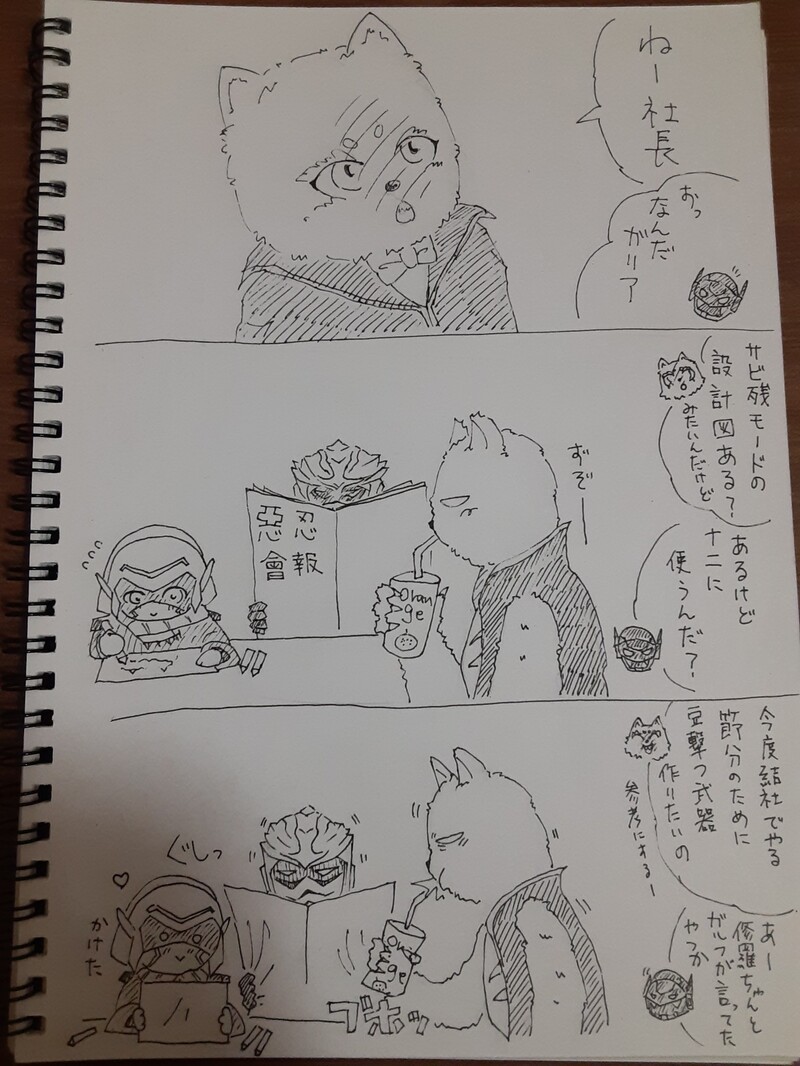 ねー社長
おっ
なんだ
ガリア
サビ残モードの
設計図ある？
みたいんだけど
あるけど
ナニに
使うんだ？
ずぞー
忍報
惡會
Oran
ge
今度結社でやる
節分のために
豆撃つ武器
作りたいの
参考にするー
あー
修羅ちゃんと
ガルフが言ってた
やつか
ぐしっ
かけた
Ora
nge
ブホッ